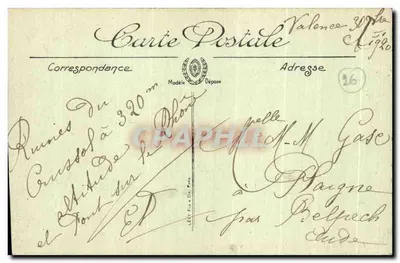 Valence
1920
Carte Postale
Correspondance
Modèle Déposé
Adresse
26
Ruines du
Crussol à 320 m
altitude
et Pont sur le Rhône
CHARPHIL.COM
Melle M-M Gase
à Plaigne
par Belpech
Aude